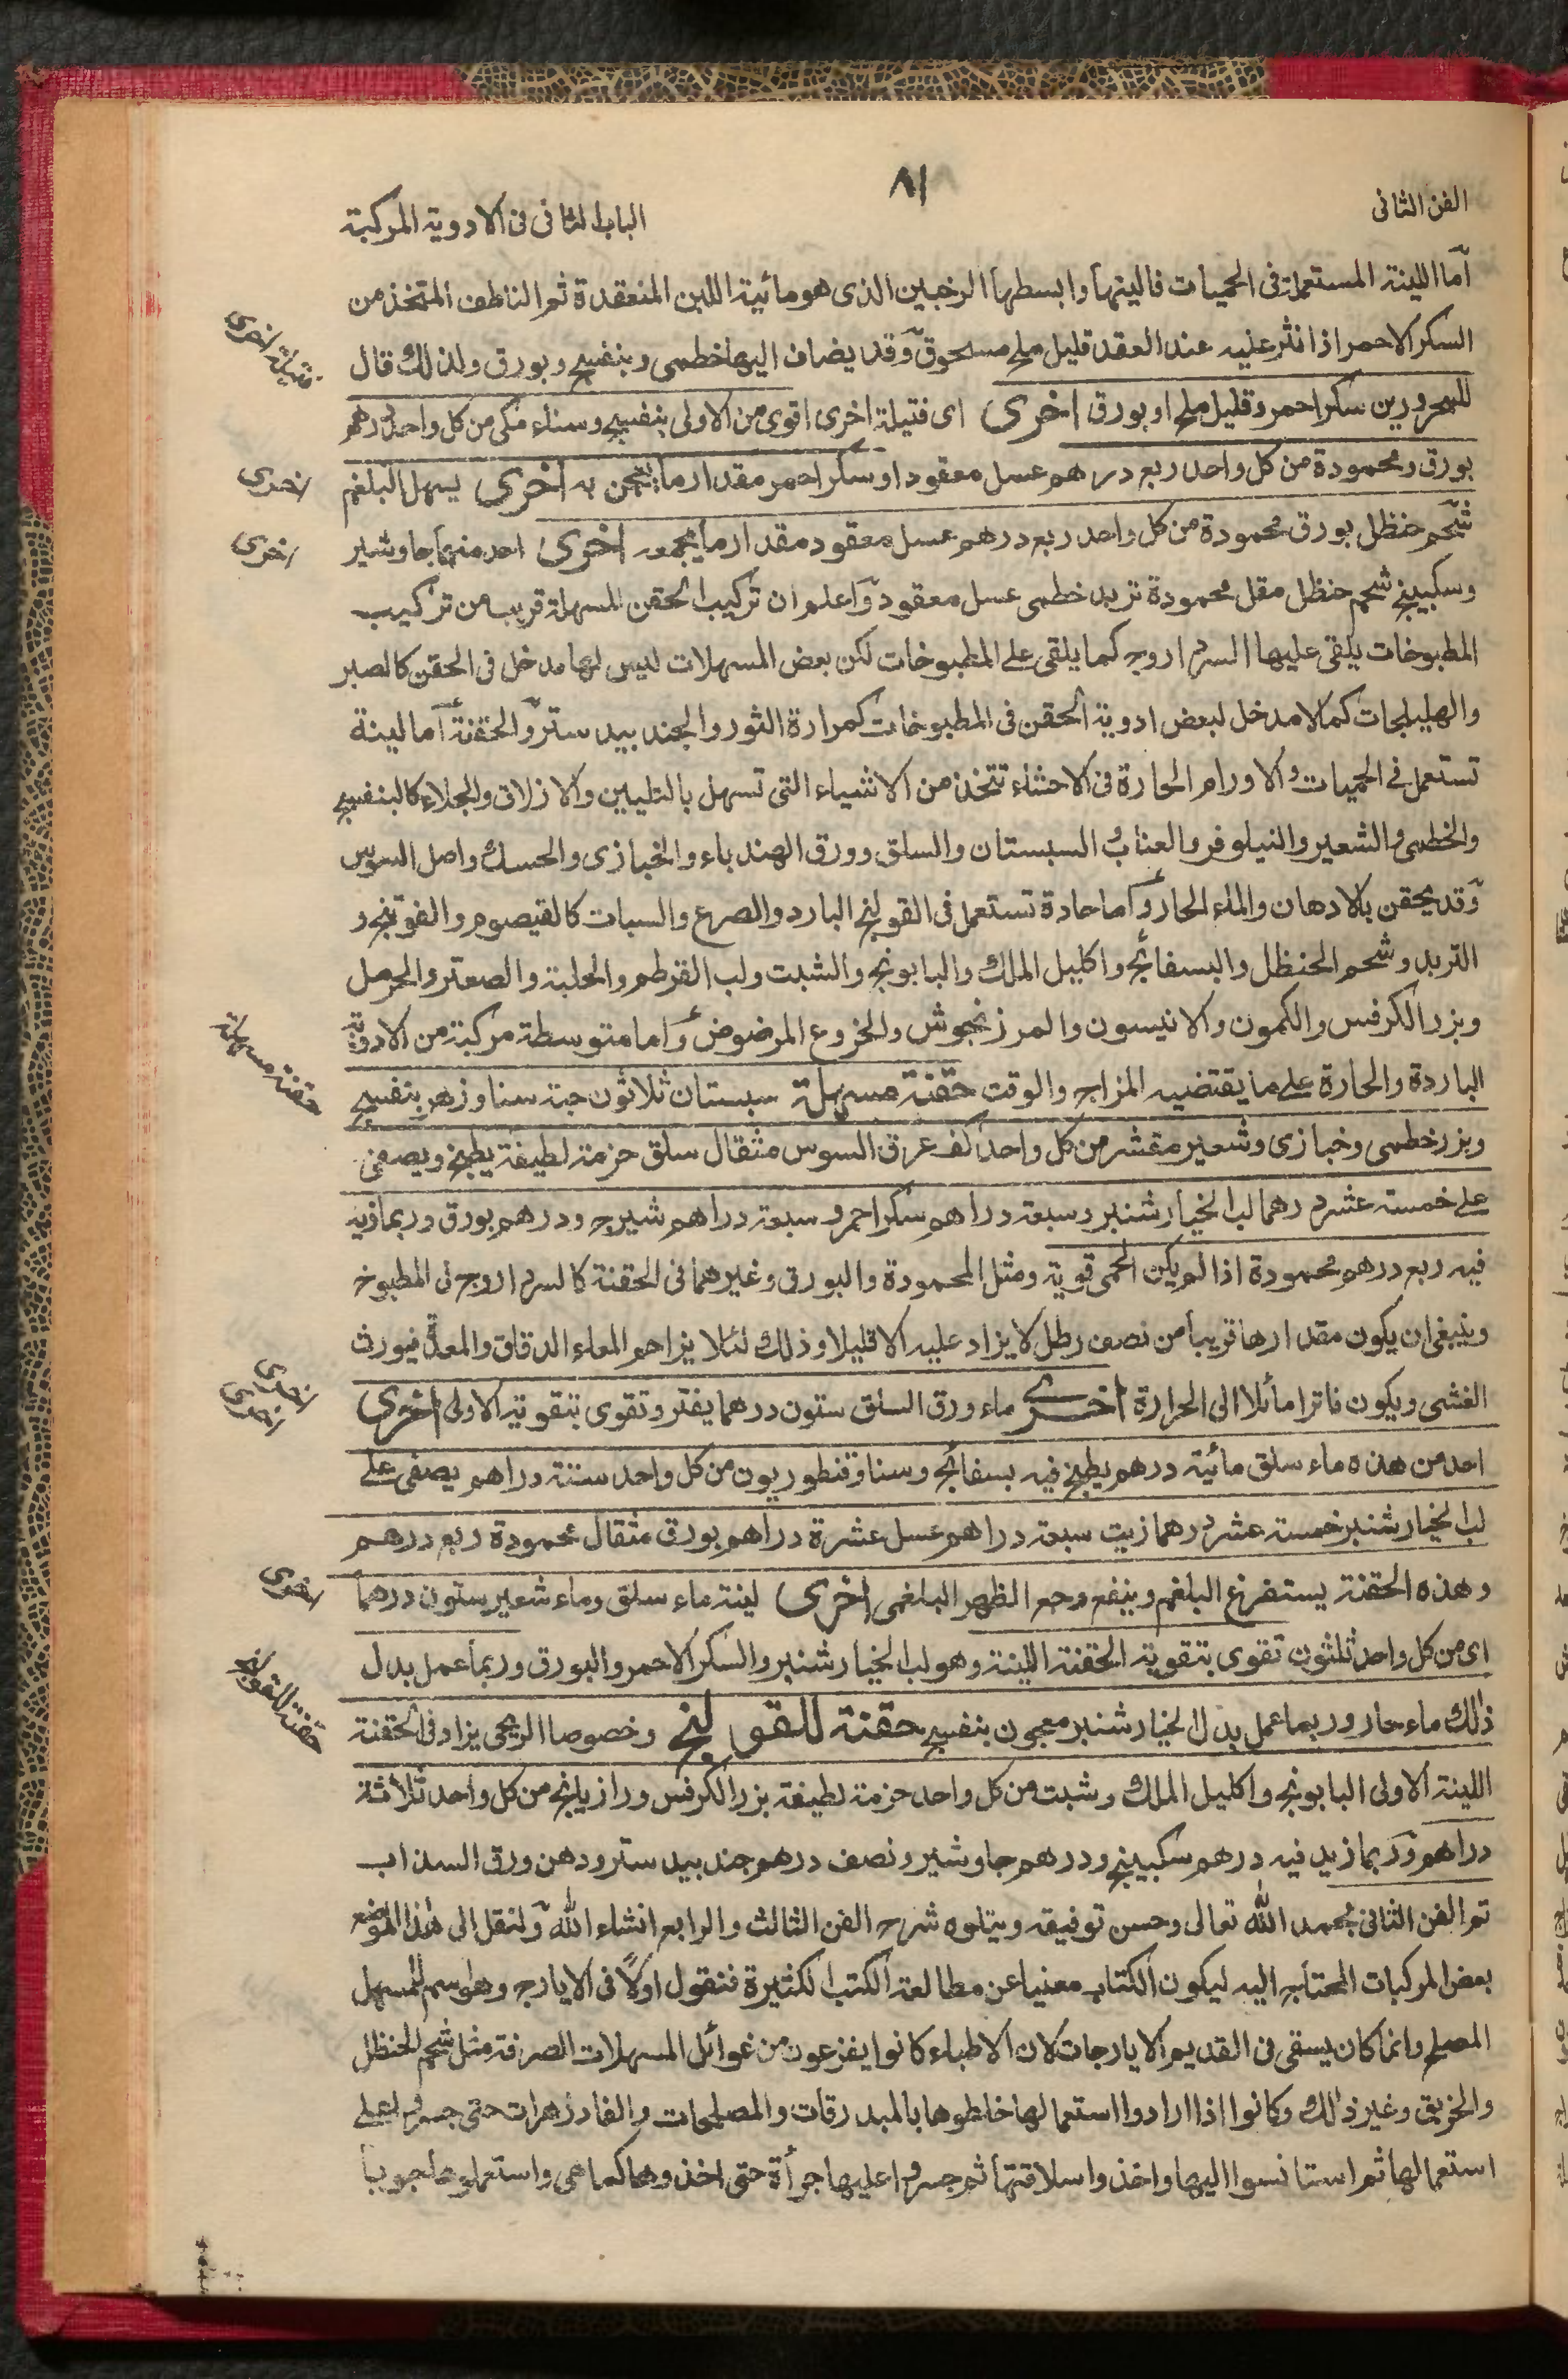 ٨١
الفن الثانى
الباب الثانى فى الادوية المركبة
اما اللينة المستعملة فى الحميات فالينها وابسطها الرخبين الذى هو مائية اللبن المنعقدة ثم الناطف المتخذ من
السكر الاحمر اذا نثر عليه عند العقد قليل ملح مسحوق وقد يضاف اليها خطمى وبنفسج وبورق ولذلك قال
فتيلة اخرى
للمحرورين سكر احمر وقليل ملح او بورق اخرى اى فتيلة اخرى اقوى من الاولى بنفسج وسناء مكى من كل واحد درهم
بورق ومحمودة من كل واحد ربع درهم عسل معقود او سكر احمر مقدار ما يعجن به اخرى يسهل البلغم
اخرى
شحم حنظل بورق محمودة من كل واحد ربع درهم عسل معقود مقدار ما يجمعه اخرى احد منها جاوشير
اخرى
وسكبينج شحم حنظل مقل محمودة تربد خطمى عسل معقود واعلم ان تركيب الحقن المسهلة قريب من تركيب
المطبوخات يلقى عليها السرداروج كما يلقى على المطبوخات لكن بعض المسهلات ليس لها مدخل فى الحقن كالصبر
والهليلجات كما لا مدخل لبعض ادوية الحقن فى المطبوخات كمرارة الثور والجندبيدستر والحقنة اما لينة
تستعمل فى الحميات والاورام الحارة فى الاحشاء تتخذ من الاشياء التى تسهل بالتليين والازلاق والجلاء كالبنفسج
والخطمى والشعير والنيلوفر والعناب السبستان والسلق وورق الهندباء والخبازى والحسك واصل السوس
وقد يحقن بالادهان والماء الحار واما حادة تستعمل فى القولنج البارد والصرع والسبات كالقيصوم والفوتنج و
التربد وشحم الحنظل والبسفائج واكليل الملك والبابونج والشبت ولب القرطم والحلبة والصعتر والحرمل
وبزر الكرفس والكمون والانيسون والمرزنجوش والخروع المرضوض واما متوسطة مركبة من الادوية
حقنة مسهلة
الباردة والحارة على ما يقتضيه المزاج والوقت حقنة مسهلة سبستان ثلاثون حبة سنا وزهر بنفسج
وبزر خطمى وخبازى وشعير مقشر من كل واحد كف عرق السوس مثقال سلق حزمة لطيفة يطبخ ويصفى
على خمسة عشر درهما لب الخيار شنبر وسبعة دراهم سكر احمر وسبعة دراهم شيرج ودرهم بورق وربما زيد
فيه ربع درهم محمودة اذا لم يكن الحمى قوية ومثل المحمودة والبورق وغيرهما فى الحقنة كالسرداروج فى المطبوخ
وينبغى ان يكون مقدارها قريبا من نصف رطل لا يزاد عليه الا قليلا وذلك لئلا يزاحم المعاء الدقاق والمعدة فيورث
الغشى ويكون فاترا مائلا الى الحرارة اخرى ماء ورق السلق ستون درهما يفتر وتقوى بتقوية الاولى اخرى
اخرى
اخرى
احد من هذه ماء سلق مائية درهم يطبخ فيه بسفائج وسنا وقنطوريون من كل واحد ستة دراهم يصفى على
لب الخيار شنبر خمسة عشر درهما زيت سبعة دراهم عسل عشرة دراهم بورق مثقال محمودة ربع درهم
وهذه الحقنة يستفرغ البلغم وينفع وجع الظهر البلغمى اخرى لينة ماء سلق وماء شعير ستون درهما
اخرى
اى من كل واحد ثلثون تقوى بتقوية الحقنة اللينة وهو لب الخيار شنبر والسكر الاحمر والبورق وربما عمل بدل
حقنة للقولنج
ذلك ماء حار وربما عمل بدل الخيار شنبر معجون بنفسج حقنة للقولنج وخصوصا الريحى يزاد فى الحقنة
اللينة الاولى البابونج واكليل الملك وشبت من كل واحد حزمة لطيفة بزر الكرفس ورازيانج من كل واحد ثلاثة
دراهم وربما زيد فيه درهم سكبينج ودرهم جاوشير ونصف درهم جندبيدستر ودهن ورق السذاب
تم الفن الثانى بحمد الله تعالى وحسن توفيقه ويتلوه شرح الفن الثالث والرابع انشاء الله ولنقل الى هذا الموضع
بعض المركبات المحتاج اليه ليكون الكتاب مغنيا عن مطالعة الكتب الكثيرة فنقول اولا فى الايارج وهو اسم للمسهل
المصلح وانما كان يسقى فى القديم الايارجات لان الاطباء كانوا يفزعون من غوائل المسهلات الصرفة مثل شحم الحنظل
والخربق وغير ذلك وكانوا اذا ارادوا استعمالها خلطوها بالمبدرقات والمصلحات والفادزهرات حتى جسروا على
استعمالها ثم استانسوا اليها واخذوا سلاقتها ثم جسروا عليها جرأة حتى اخذوها كما هى واستعملوها حبوبا